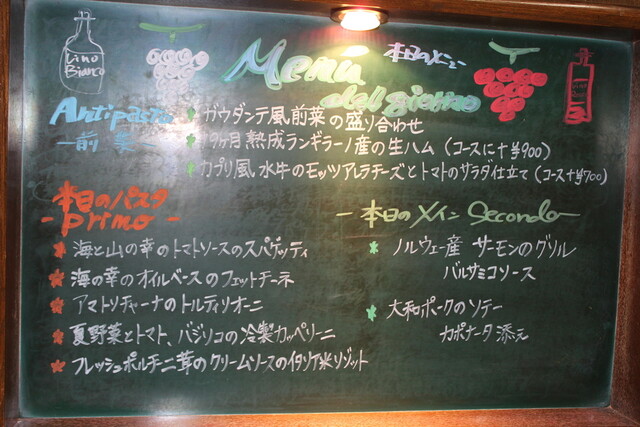 Vino
Bianco
Menu
del giorno
本日のメニュー
Antipasto
-前菜-
ガウダンテ風前菜の盛り合わせ
19ヶ月熟成ランギラーノ産の生ハム (コースに+¥900)
カプリ風 水牛のモッツァレラチーズとトマトのサラダ仕立て (コース+¥700)
本日のパスタ
- primo -
海と山の幸のトマトソースのスパゲッティ
海の幸のオイルベースのフェットチーネ
アマトリチャーナのトルティリオーニ
夏野菜とトマト、バジリコの冷製カッペリーニ
フレッシュポルチーニ茸のクリームソースのイタリア米リゾット
- 本日のメイン Secondo -
ノルウェー産 サーモンのグリル
バルサミコソース
大和ポークのソテー
カポナータ添え